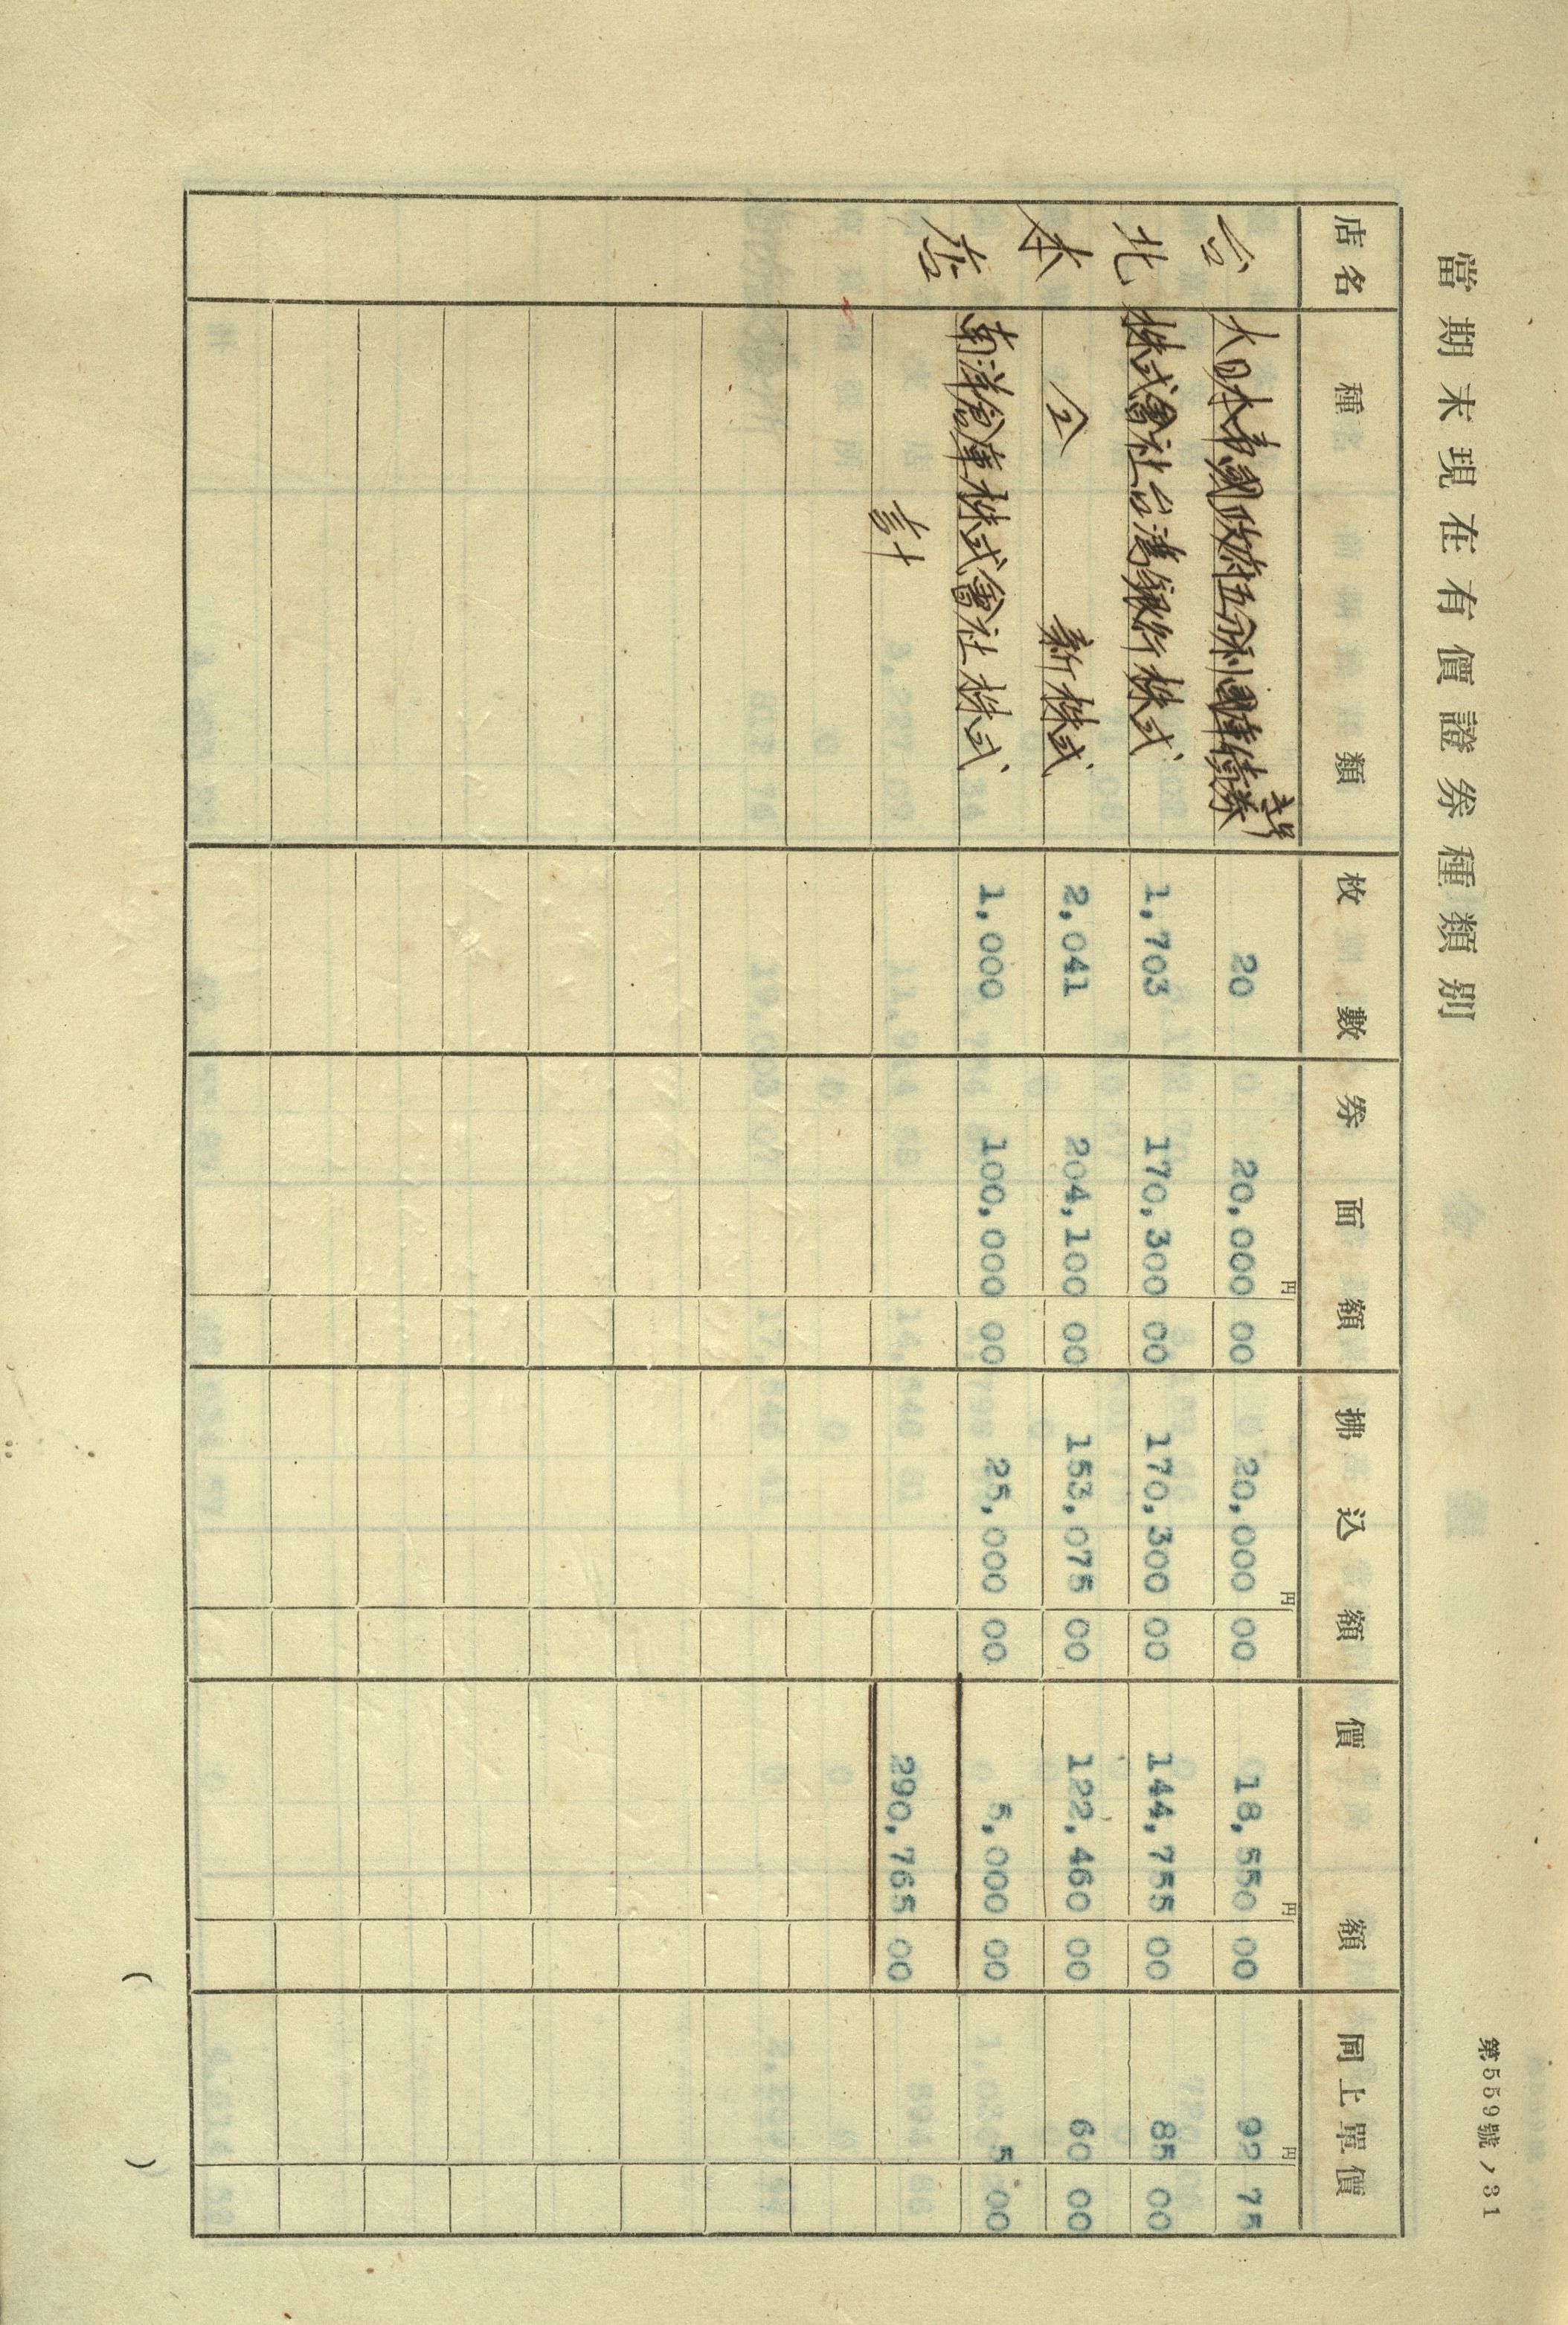 第559號ノ31
當期末現在有價證券種類別
店名 種類 枚數 券面額 拂込額 價額 同上單價
台北本店
大日本帝國政府五分利國庫債券 20 20,000円00 20,000円00 18,550円00 92円75
株式會社台湾銀行株式 1,703 170,300 00 170,300 00 144,755 00 85 00
新株式 2,041 204,100 00 153,075 00 122,460 00 60 00
南洋倉庫株式會社株式 1,000 100,000 00 25,000 00 5,000 00 5 00
計 290,765 00
( )